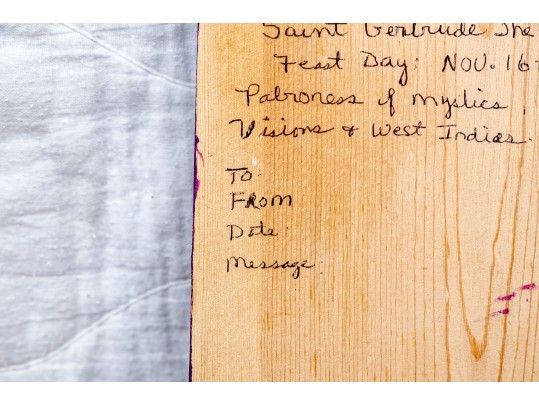 Saint Gertrude The
Feast Day: NOV. 16
Patroness of Mystics,
Visions & West Indies.
To:
From
Date:
Message: